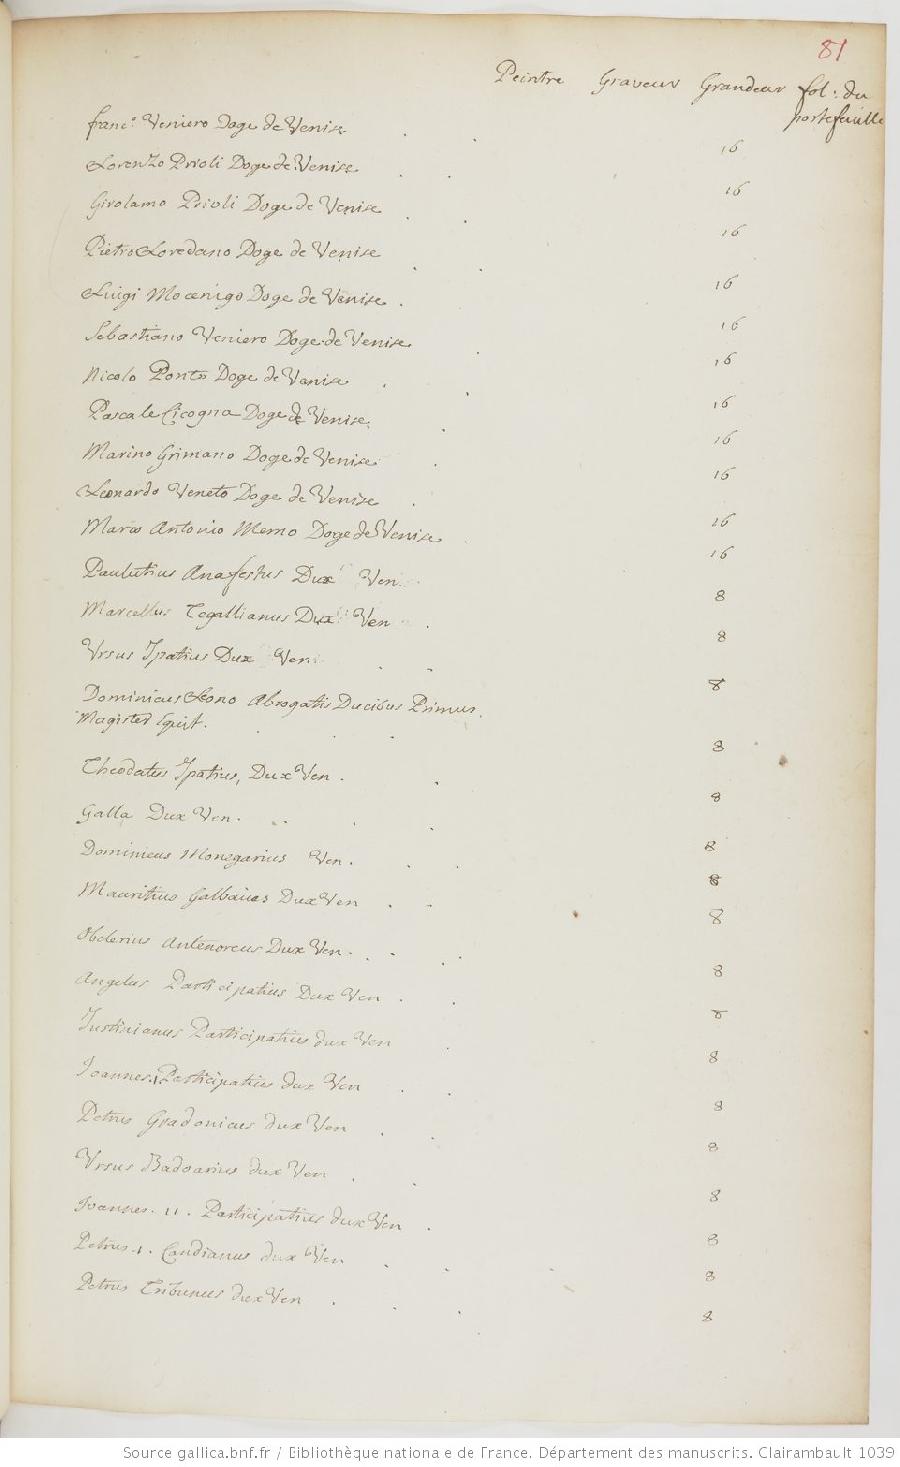 81
Peintre Graveur Grandeur fol: du
portefeuille
franc.º Veniero Doge de Venise 16
Lorenzo Prioli Doge de Venise 16
Girolamo Prioli Doge de Venise 16
Pietro Loredano Doge de Venise 16
Luigi Mocenigo Doge de Venise 16
Sebastiano Veniero Doge de Venise 16
Nicolo Ponto Doge de Venise 16
Pascale Cicogna Doge de Venise 16
Marino Grimano Doge de Venise 16
Leonardo Veneto Doge de Venise 16
Marco Antonio Memo Doge de Venise 16
Paulutius Anafestus Dux Ven 8
Marcellus Tegallianus Dux Ven 8
Vrsus Ipatius Dux Ven 8
Dominicus Leono Abrogatis Ducibus Primus
Magister Equit. 8
Theodatus Ipatius, Dux Ven. 8
Galla Dux Ven. 8
Dominicus Monegarius Ven. 8
Mauritius Galbaius Dux Ven 8
Obelerius Antenoreus Dux Ven. 8
Angelus Participatius Dux Ven 8
Justinianus Participatius dux Ven 8
Joannes.I Participatius dux Ven 8
Petrus Gradonicus dux Ven 8
Vrsus Badoarius dux Ven 8
Joannes. II. Participatius dux Ven 8
Petrus.I. Candianus dux Ven 8
Petrus Tribunus dux Ven 8
Source gallica.bnf.fr / Bibliothèque nationale de France. Département des manuscrits. Clairambault 1039